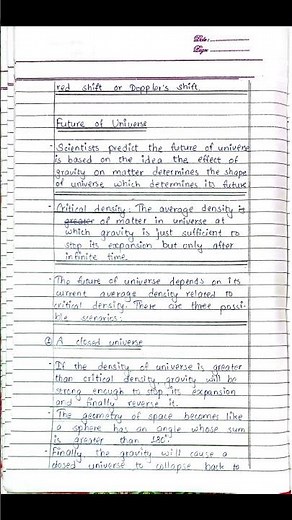 Date:
Page
red shift or Doppler's shift.
Future of Universe
· Scientists predict the future of universe
is based on the idea the effect of
gravity on matter determines the shape
of universe which determines its future
· Critical density: The average density is
greater of matter in universe at
which gravity is just sufficient to
stop its expansion but only after
infinite time.
· The future of universe depends on its
current average density related to
critical density. There are three possi-
ble scenarios:
A closed universe
· If the density of universe is greater
than critical density, gravity will be
strong enough to stop its expansion
and finally reverse it.
· The geometry of space becomes like
a sphere has an angle whose sum
is greater than 180°.
· Finally, the gravity will cause a
closed universe to collapse back to